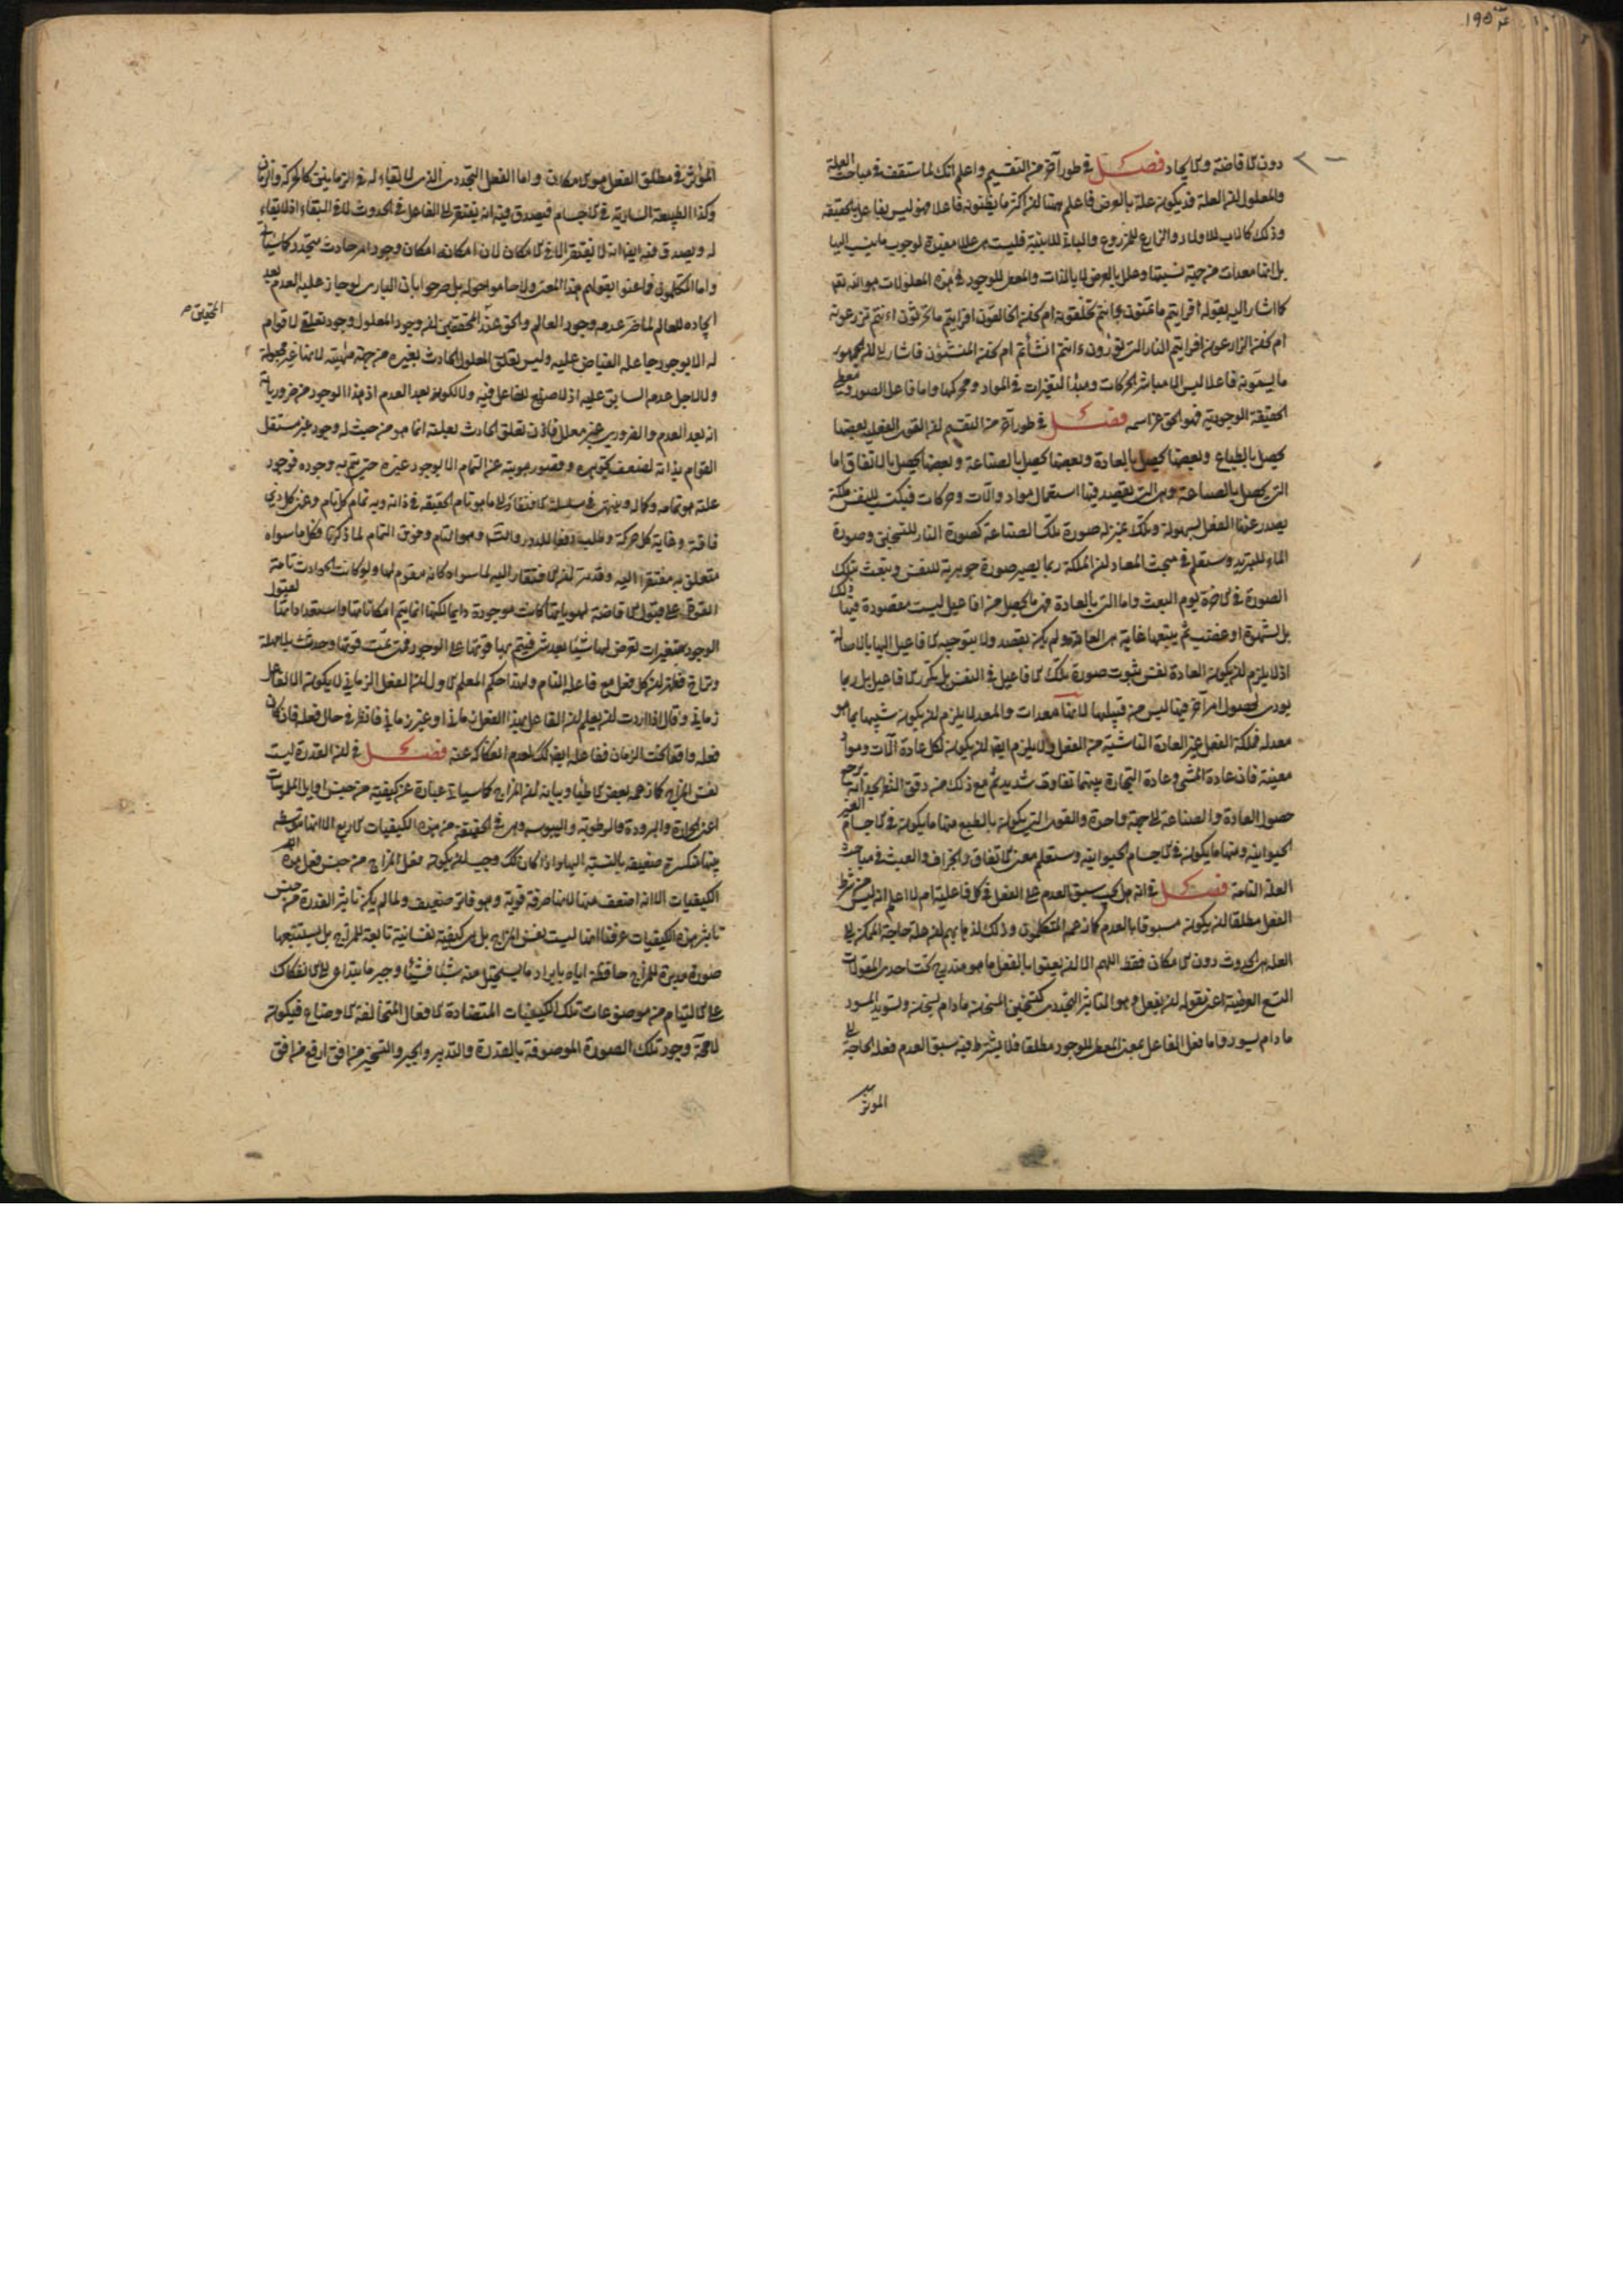 ١٩٥
دون الافاضة والايجاد فصل في طور آخر من التقسيم واعلم انك لما ستقف في مباحث العلة
والمعلول ان العلة قد يكون علة بالعرض فاعلم ههنا ان اكثر ما يظنونه فاعلا فهو ليس بفاعل بالحقيقة
وذلك كالاب للاولاد والزارع للزروع والباني للابنية فليست هي عللا مفيدة لوجوب ما ينسب اليها
بل انها معدات من جهة نسبتها وعلل بالعرض لا بالذات والمعطي للوجود في هذه المعلولات هو الله تعالى
كما اشار اليه بقوله أفرايتم ما تمنون ءانتم تخلقونه ام نحن الخالقون افرايتم ما تحرثون ءانتم تزرعونه
ام نحن الزارعون افرايتم النار التي تورون ءانتم انشأتم ام نحن المنشئون فاشار الى ان الجمهور
ما يسمونه فاعلا ليس الا مباشر الحركات ومبدأ التغيرات في المواد ومحركها واما فاعل الصور ومعطي
الحقيقة الوجودية فهو الحق عز اسمه فصل في طور آخر من التقسيم ان القوى الفعلية بعضها
يحصل بالطباع وبعضها يحصل بالعادة وبعضها يحصل بالصناعة وبعضها يحصل بالاتفاق اما
التي يحصل بالصناعة وهي التي يقصد فيها استعمال مواد وآلات وحركات فيكتسب للنفس ملكة
يصدر عنها الفعل بسهولة وتلك بمنزلة صورة تلك الصناعة كصورة النار للتسخين وصورة
الماء للتبريد وستعلم في مبحث المعاد ان الملكة ربما يصير صورة جوهرية للنفس وتبعث بتلك
الصورة في الآخرة يوم البعث واما التي بالعادة فهي ما يحصل من افاعيل ليست مقصودة فيها ذلك
بل لشهوة او غضب ثم يتبعها غاية هي العادة ولم يكن يقصد ولا يتوجه الافاعيل اليها بالاصالة
اذ لا يلزم ان يكون العادة نفس ثبوت صورة تلك الافاعيل في النفس بل تكرر الافاعيل بل ربما
يودي لحصول امر آخر فيها ليس من قبيلها لانها معدات والمعد لا يلزم ان يكون شبيها بما هو
معد له فملكة الفعل غير العادة الناشية من الفعل ولا يلزم ايضا ان يكون لكل عادة آلات ومواد
معينة فان عادة المشي وعادة التجارة بينهما تفاوت شديد ثم مع ذلك من دقق النظر يجد انه يرجع
حصول العادة والصناعة الى جهة واحدة والقوى التي يكون بالطبع منها ما يكون في الاجسام الغير
الحيوانية ومنها ما يكون في الاجسام الحيوانية وستعلم معنى الاتفاق والجزاف والعبث في مباحث
العلة التامة فصل في انه هل يجب سبق العدم على الفعل في كل فاعلية ام لا اعلم انه ليس من شرط
الفعل مطلقا ان يكون مسبوقا بالعدم كما زعمه المتكلمون وذلك لذهابهم ان علة حاجة الممكن الى
العلة هي الحدوث دون الامكان فقط اللهم الا ان يعنوا بالفعل ما هو مندرج تحت احدى المقولات
التسع العرضية اعني مقولة ان يفعل وهو التاثير التجددي كتسخين المسخن ما دام يسخن وتسويد المسود
ما دام يسود واما فعل الفاعل بمعنى المعطي للوجود مطلقا فلا يشترط فيه سبق العدم فعلة الحاجة الى
الموثر
المؤثر في مطلق الفعل هو الامكان واما الفعل التجددي الذي لا بقاء له في الزمانين كالحركة والزمان
وكذا الطبيعة السارية في الاجسام فيصدق فيه انه يفتقر الى الفاعل في الحدوث لا في البقاء اذ لا بقاء
له ويصدق فيه ايضا انه لا يفتقر الا في الامكان لان امكانه امكان وجود امر حادث متجدد كائنا
واما المتكلمون فما عنوا بقولهم هذا المعنى ولا حاموا حوله بل صرحوا بان الباري لو جاز عليه العدم بعد
ايجاده للعالم لما ضر عدمه وجود العالم والحق عند المحققين ان وجود المعلول وجود تعلقي لا قوام
التحقيق م
له الا بوجود جاعله الفياض عليه وليس تعلق المعلول الحادث بغيره من جهة مهيته لانها غير مجعولة
ولا لاجل عدمه السابق عليه اذ لا صنع للفاعل فيه ولا لكونه بعد العدم اذ هذا الوجود من ضرورياته
انه بعد العدم والضروري غير معلل فاذن تعلق الحادث بعلته انما هو من حيث له وجود غير مستقل
القوام بذاته لضعف تجوهره وقصور هويته عن التمام الا بوجود غيره حتى يتم به وجوده فوجود
علته هو تمامه وكماله وينتهي في سلسلة الافتقار الى ما هو تام الحقيقة في ذاته وبه تمام كل تام وعنى كل ذي
فاقة وغاية كل حركة وطلب دفعا للدور والتسلسل وهو التام وفوق التمام لما ذكرنا فكل ما سواه
متعلق به مفتقر اليه وقد مر ان الافتقار اليه لما سواه كانه مقوم لها ولو كانت الحوادث تامة
القوى على قبول الافاضة لهوياتها كانت موجودة دايما لكنها انما يتم امكاناتها واستعداداتها لقبول
الوجود بتغيرات تعرض لها شيئا بعد شيء فيتم بها قوتها على الوجود فمتى تمت قوتها وجدت بلا مهلة
وتراخ فقد ظهر ان كل فعل مع فاعله التام ولهذا حكم المعلم الاول ان الفعل الزماني لا يكون الا لفاعل
زماني وقال اذا اردت ان تعلم ان الفاعل لهذا الفعل زماني او غير زماني فانظر في حال فعله فان كان
فعله واقعا تحت الزمان ففاعله ايضا كذلك لعدم انفكاكه عنه فصل في ان القدرة ليست
نفس المزاج كما زعمه بعض الاطباء وبيانه ان المزاج كما سياتي عبارة عن كيفية من جنس اوايل الملموسات
اعني الحرارة والبرودة والرطوبة واليبوسة وهي في الحقيقة من هذه الكيفيات الاربع الا انها متوسطة
بينها منكسرة ضعيفة بالنسبة اليها واذا كان كذلك وجب ان يكون فعل المزاج من جنس فعل هذه
الكيفيات الا انه اضعف منها لانها صرفة قوية وهو فاتر ضعيف ولما لم يكن تاثير القدرة من جنس
تاثير هذه الكيفيات عرفنا انها ليست نفس المزاج بل هي كيفية نفسانية تابعة للمزاج بل يستتبعها
صورة مدبرة للمزاج حافظة اياه بايراد ما يستحيل منه شيئا فشيئا وجبر ما يتداعى الى الانفكاك
على الالتيام من موضوعات تلك الكيفيات المتضادة الافعال المتخالفة الاوضاع فيكون
لا محالة وجود تلك الصورة الموصوفة بالقدرة والتدبير والجبر والتسخير من افق ارفع من افق